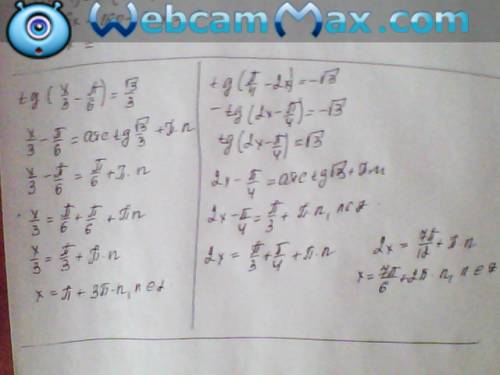 WebcamMax.com
tg (x/3 - π/6) = √3/3
x/3 - π/6 = arctg √3/3 + π·n
x/3 - π/6 = π/6 + π·n
x/3 = π/6 + π/6 + πn
x/3 = π/3 + π·n
x = π + 3π·n, n∈z
tg (π/4 - 2x) = -√3
-tg (2x - π/4) = -√3
tg (2x - π/4) = √3
2x - π/4 = arctg √3 + πn
2x - π/4 = π/3 + π·n, n∈z
2x = π/3 + π/4 + π·n
2x = 7π/12 + π·n
x = 7π/6 + 2π·n, n∈z